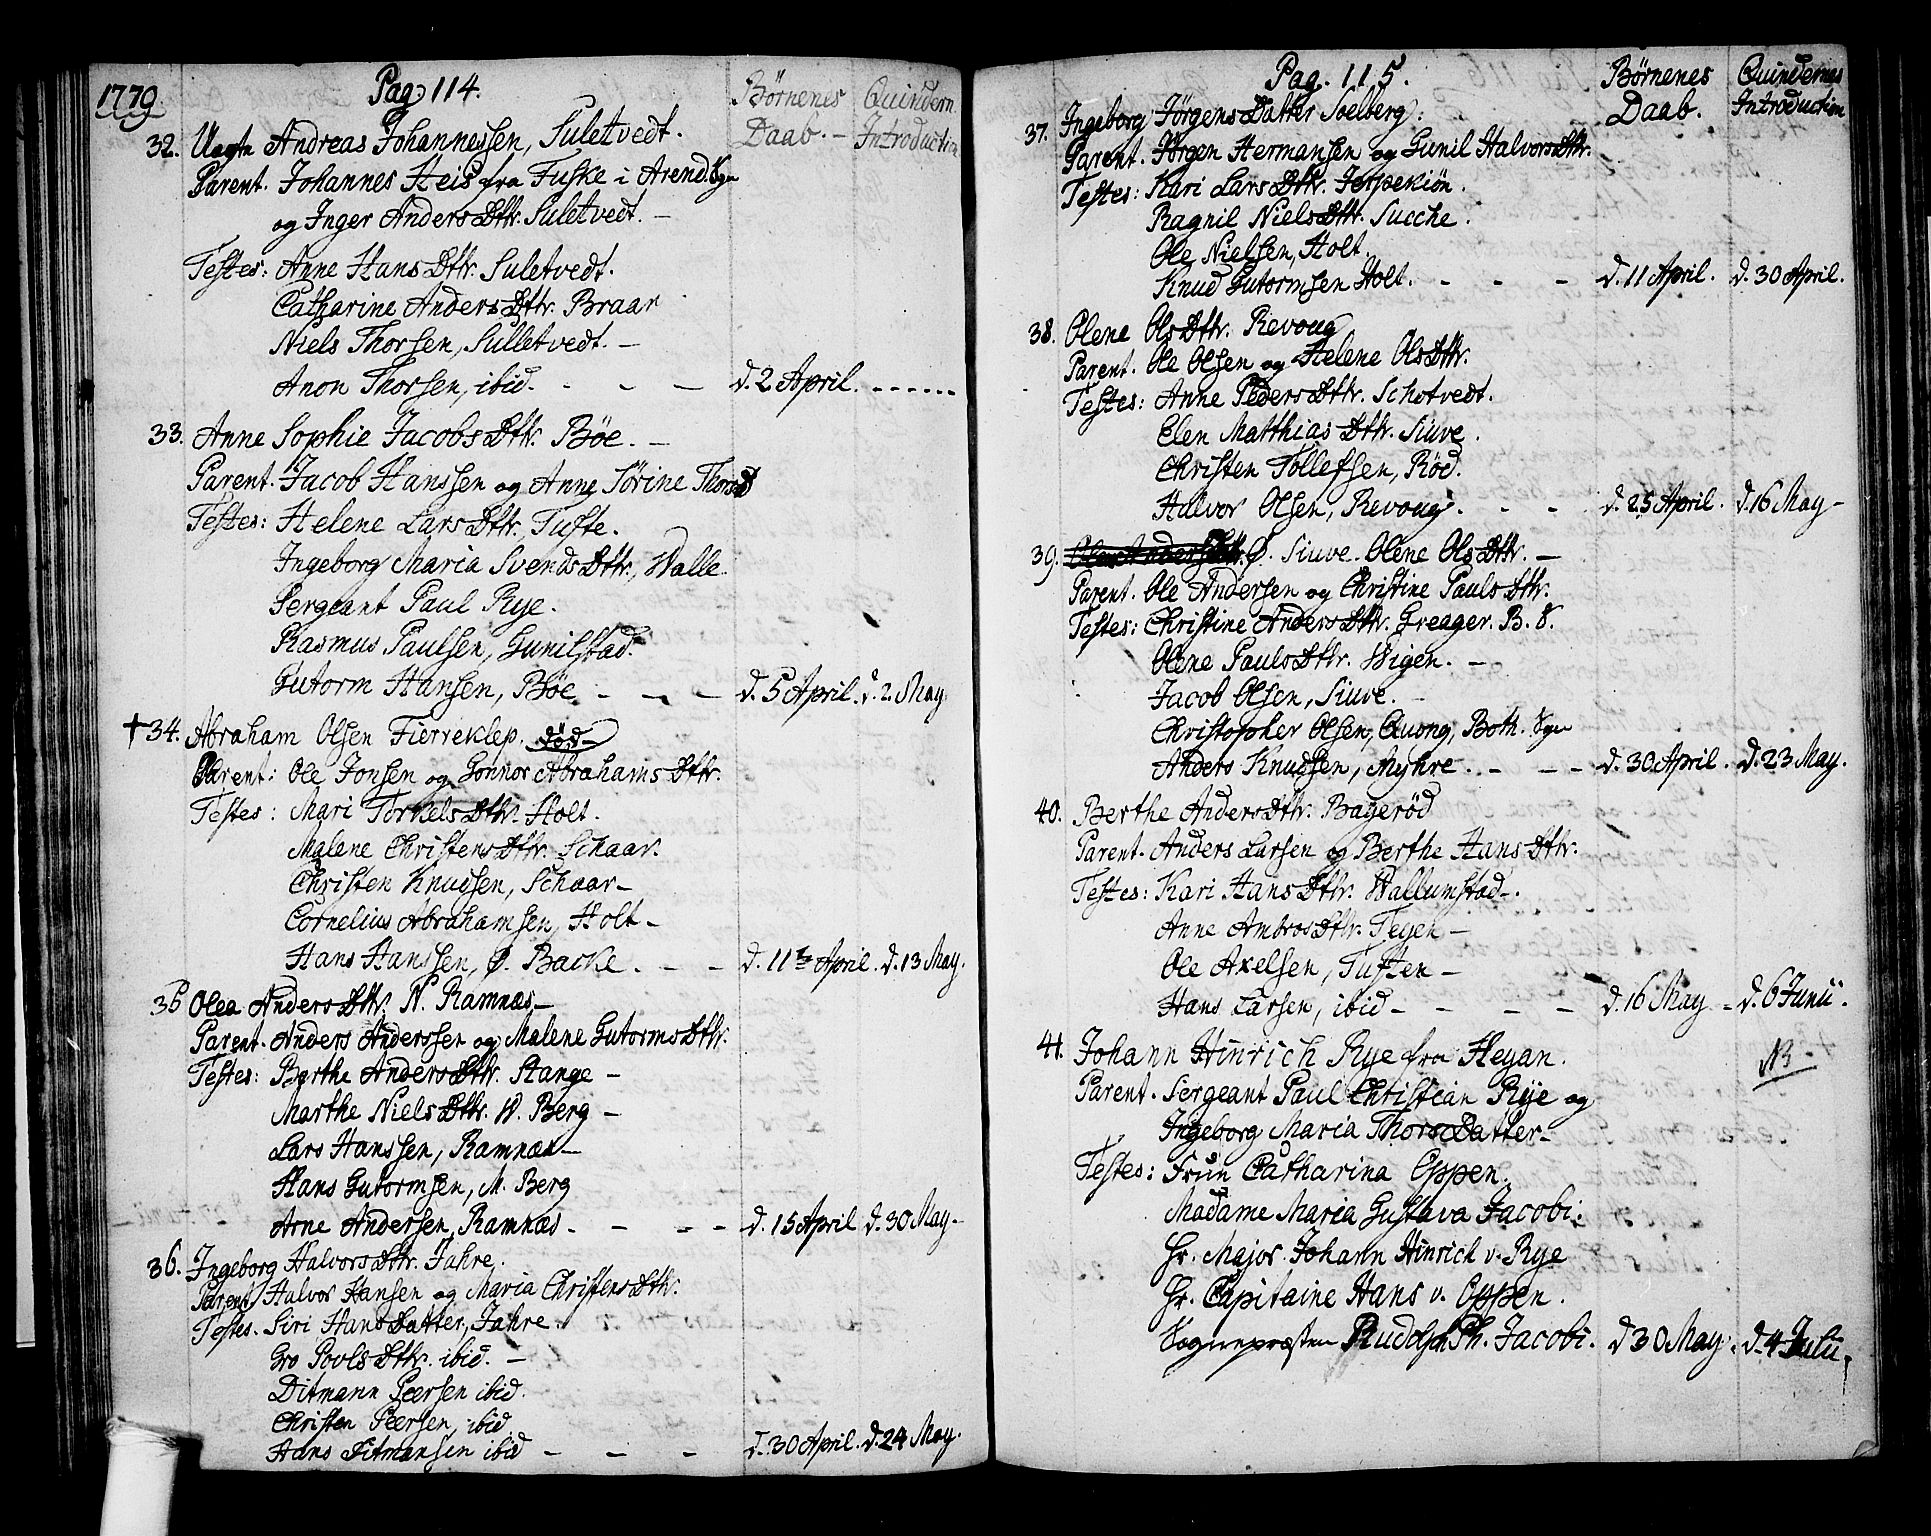 1779.
Pag. 114.
Börnenes Daab. -
Quindern Introduction
32. Uægte Andreas Johannessen, Suletvedt.
Parent. Johannes Heis fra Fuske i Arend. Sgn
og Inger AndersDttr. Suletvedt. -
Testes: Anne HansDttr. Suletvedt.
Catharine AndersDttr. Braar
Niels Thorsen, Sulletvedt. -
Anon Thorsen, ibid. - - - d. 2 April. ------
33. Anne Sophie JacobsDttr. Böe. -
Parent. Jacob Hanssen og Anne Sörine ThorsD
Testes: Helene LarsDttr. Tufte.
Ingeborg Maria SvendsDttr, Walle.
Sergeant Paul Rye.
Rasmus Paulsen, Gunilstad.
Gutorm Hansen, Böe - - - d. 5 April. d. 2. May.
† 34. Abraham Olsen Fierreklep. död-
Parent: Ole Jonsen og Gonnor AbrahamsDttr.
Testes: Mari TorkelsDttr. Holt.
Malene ChristensDttr. Schaar.
Christen Knudsen, Schaar-
Cornelius Abrahamsen, Holt-
Hans Hanssen, Ø. Backe. - - d. 11te April. d. 13 May.
35 Olea AndersDttr. N. Ramnæs-
Parent. Anders Anderssen og Malene GutormsDttr.
Testes: Berthe AndersDttr. Stange -
Marthe NielsDttr. W. Berg -
Lars Hanssen, Ramnæs-
Hans Gutormsen, M. Berg
Arne Andersen, Ramnæs- - - - d. 15 April d. 30 May-
36. Ingeborg HalvorsDttr. Jahre.
Parent/ Halvor Hansen og Maria ChristensDttr.
Testes. Siri HansDatter, Jahre.
Gro PovlsDttr. ibid. -
Ditmann Peersen ibid.
Christen Peersen, ibid
Hans Ditmansen ibid - - - d. 30 April. d. 24 May.
Pag. 115.
Börnenes Daab.
Quindernes Introduction
37. Ingeborg JörgensDatter Soelberg.
Parent. Jörgen Hermansen og Gunil HalvorsDttr.
Testes: Kari LarsDttr. Jerpekiön.
Ragnil NielsDttr. Sucche.
Ole Nielsen, Holt.
Knud Gutormsen Holt. - - - d. 11 April. d. 30 April.
38. Olene OlsDttr. Revoug
Parent. Ole Olsen og Helene OlsDttr.
Testes: Anne PedersDttr. Schotvedt.
Elen MatthiasDttr. Siuve.
Christen Tollefsen, Röd.
Halvor Olsen, Revoug. - - d. 25 April. d. 16 May-
39. Ø. Siuve. Olene OlsDttr. -
Parent. Ole Andersen og Christine PaulsDttr.
Testes: Christine AndersDttr. Greager. B. S.
Olene PaulsDttr. Wigen. -
Jacob Olsen, Siuve. -
Christopher Olsen, Quong, Both. Sgn
Anders Knudsen, Myhre. - - - d. 30 April. d. 23 May.
40. Berthe AndersDttr. Bageröd
Parent. Anders Larsen og Berthe HansDttr.
Testes: Kari HansDttr. Wallumstad-.
Anne AmbrosDttr. Tegen -
Ole Axelsen, Tuften -
Hans Larsen, ibid - - - - d. 16 May - d. 6 Junii.
41. Johann Hinrich Rye fra Heyan. NB -
Parent. Sergeant Paul Christian Rye og
Ingeborg Maria ThorsDatter-
Testes: Frue Catharina Oppen.
Madame Maria Gustava Jacobi.
Hr. Major Johann Hinrich v. Rye
Hr. Capitaine Hans v. Oppen.
Sognepræsten Rudolph Ph. Jacobi. d 30 May. d. 4 Julii.